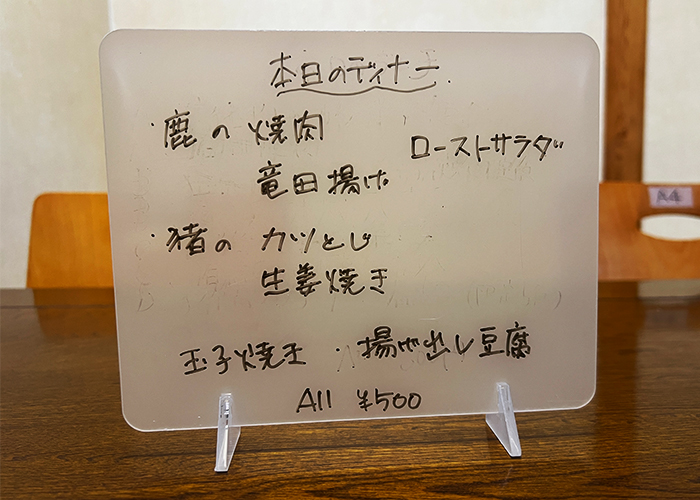 本日のディナー
・鹿の 焼肉
ローストサラダ
竜田揚げ
・猪の カツとじ
生姜焼き
玉子焼き ・ 揚げ出し豆腐
All ¥500
A4